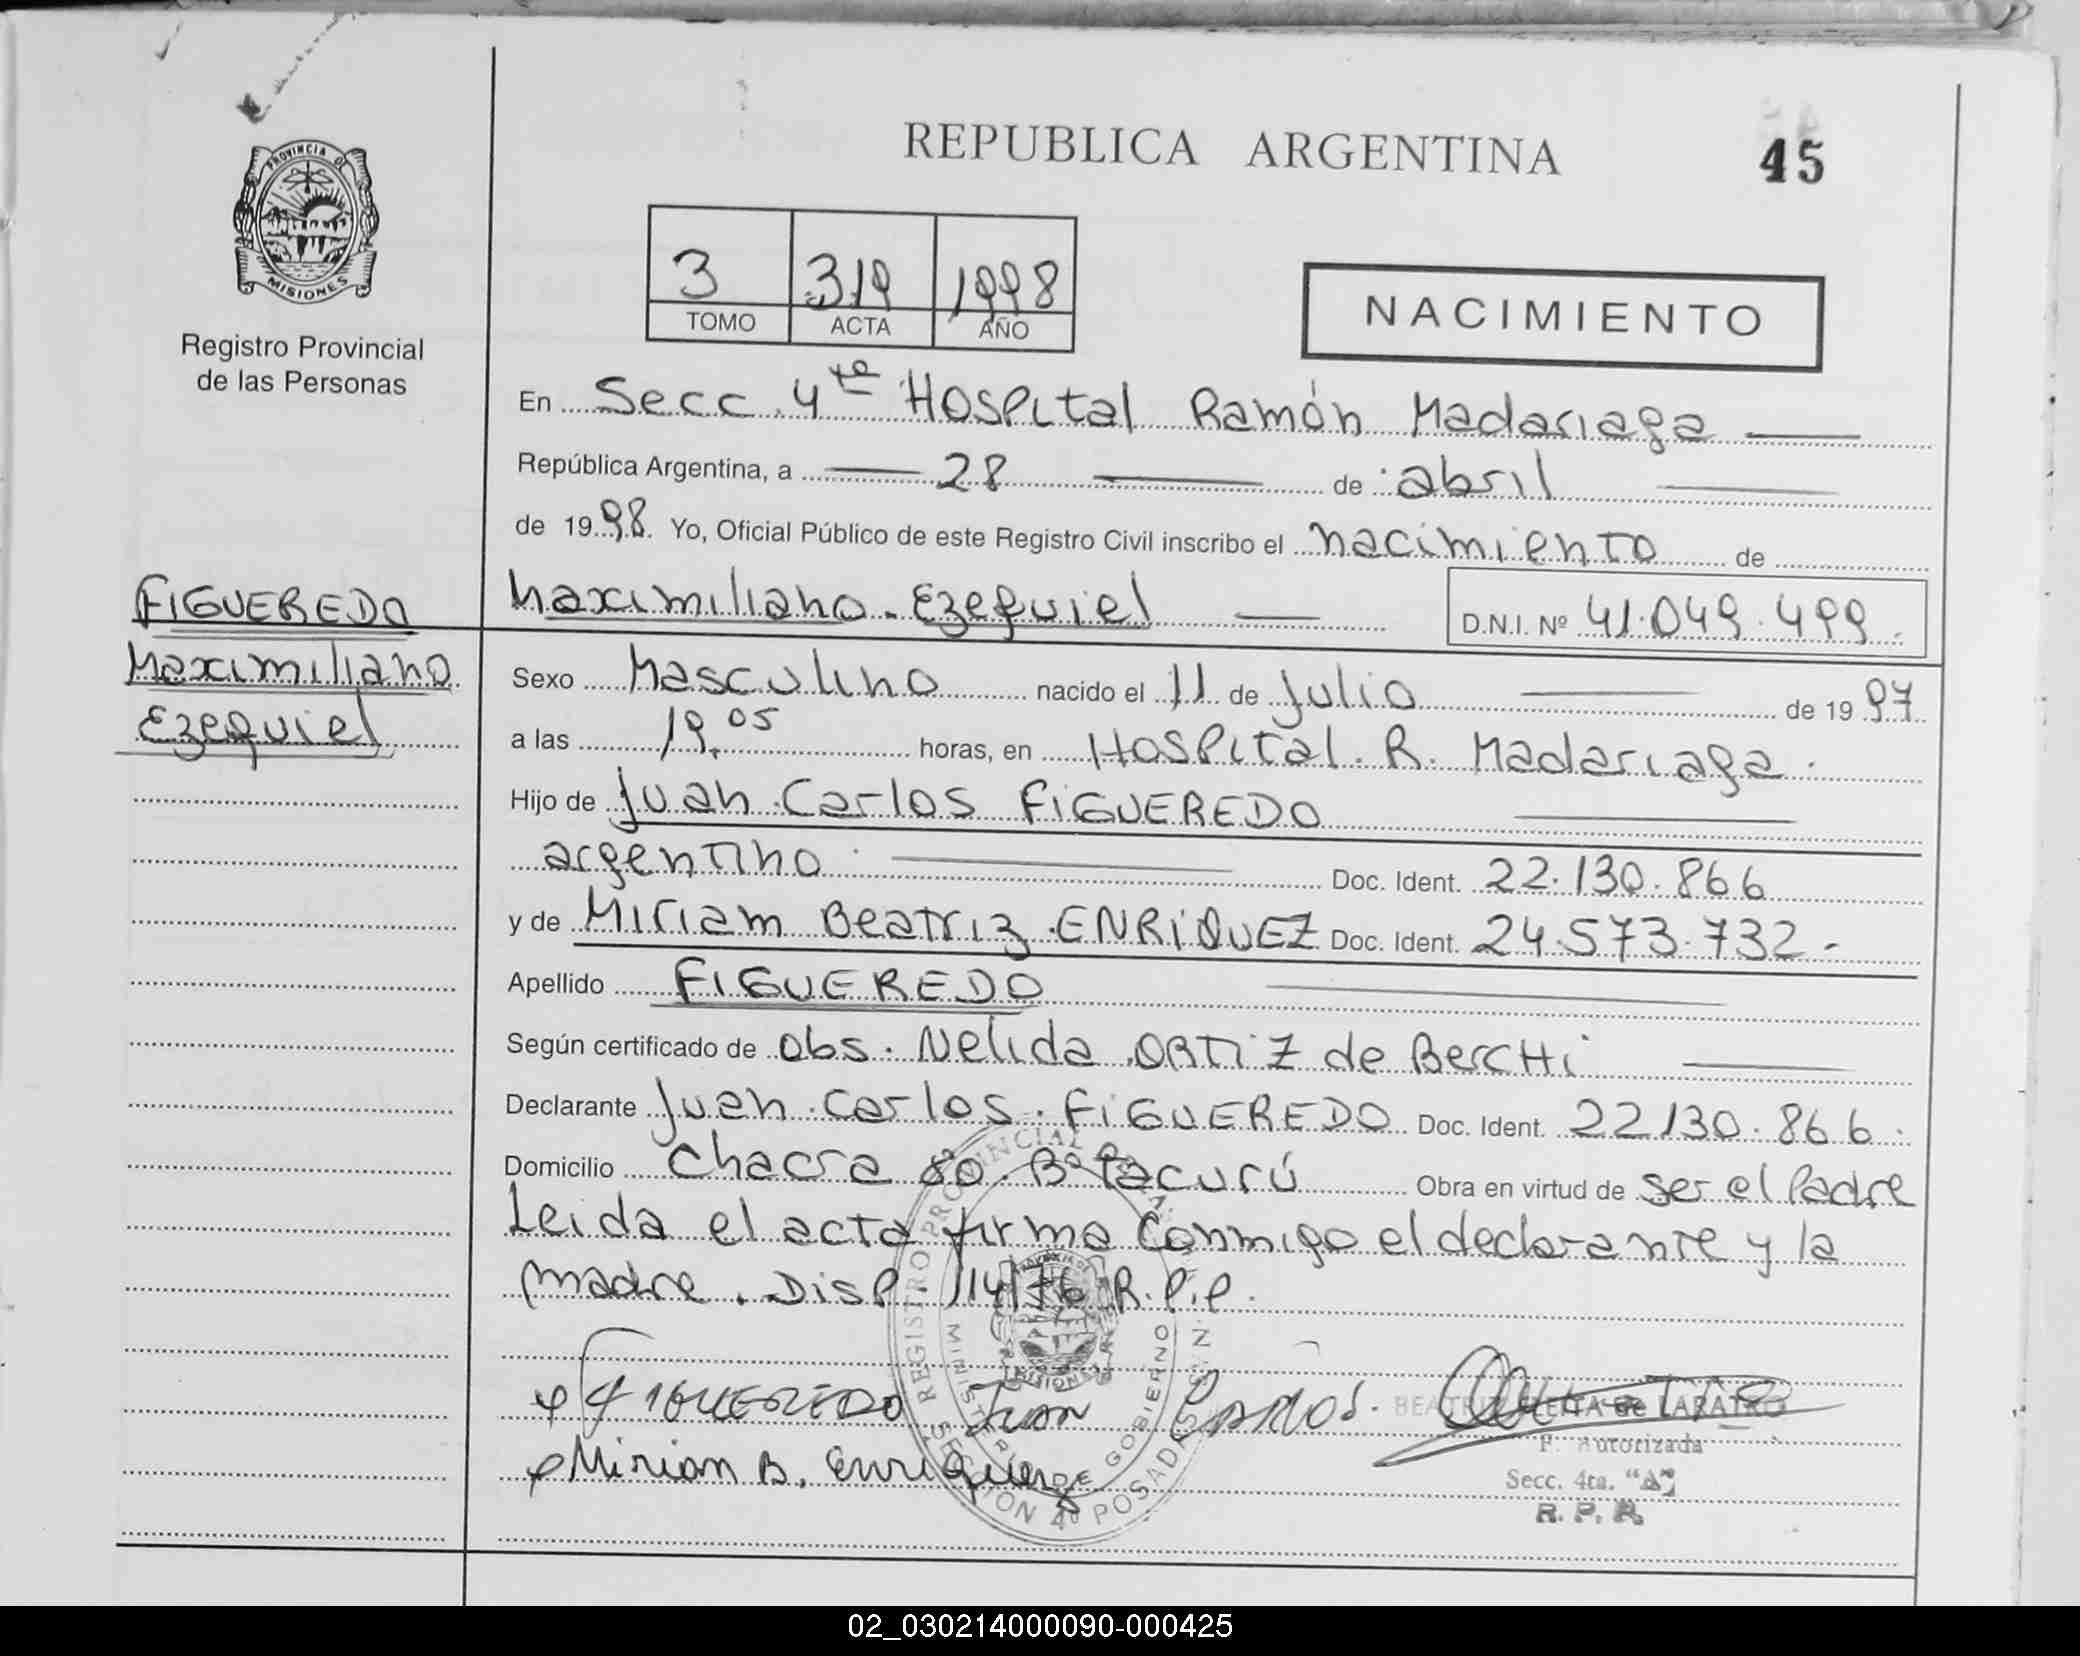 REPUBLICA ARGENTINA
45
PROVINCIA DE
MISIONES
Registro Provincial
de las Personas
3 319 1998
TOMO ACTA AÑO
NACIMIENTO
En Secc 4ta Hospital Ramón Madariaga
República Argentina, a 28 de abril
de 1998. Yo, Oficial Público de este Registro Civil inscribo el nacimiento de
Maximiliano Ezequiel D.N.I. Nº 41.049.499.
FIGUEREDO
Maximiliano
Ezequiel
Sexo Masculino nacido el 11 de Julio de 1997
a las 19.05 horas, en Hospital R. Madariaga.
Hijo de Juan Carlos FIGUEREDO
argentino Doc. Ident. 22.130.866
y de Miriam Beatriz ENRIQUEZ Doc. Ident. 24.573.732.-
Apellido FIGUEREDO
Según certificado de Obs. Nelida ORTIZ de BercHi
Declarante Juan Carlos FIGUEREDO Doc. Ident. 22130.866.
Domicilio Chacra 80. Bº Tacurú Obra en virtud de ser el Padre
Leida el acta firma conmigo el declarante y la
madre. Disp. 114/76 R.P.P.
FIGUEREDO JUAN CARLOS.
Mirian B. Enriquez
REGISTRO PROVINCIAL DE LAS PERSONAS
MINISTERIO DE GOBIERNO
SECCION 4º POSADAS
MISIONES
BEATRIZ de
F. Autorizada
Secc. 4ta. "A"
R. P. P.
02_030214000090-000425